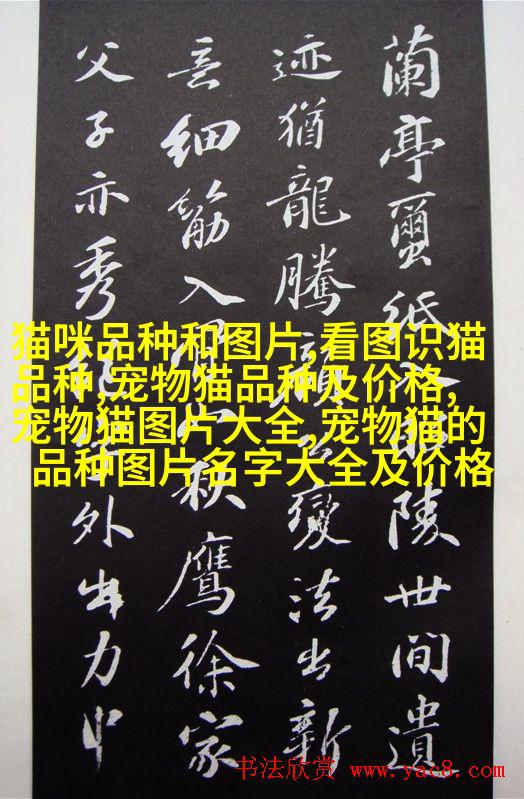 蘭亭蠒紙入昭陵世間遺
迹猶龍騰顏公變法出新
意細筋入骨如秋鷹徐家
父子亦秀絕字外出力中
猫咪品种和图片,看图识猫
品种,宠物猫品种及价格,
宠物猫图片大全,宠物猫的
品种图片名字大全及价格
书法欣赏 www.yac8.com